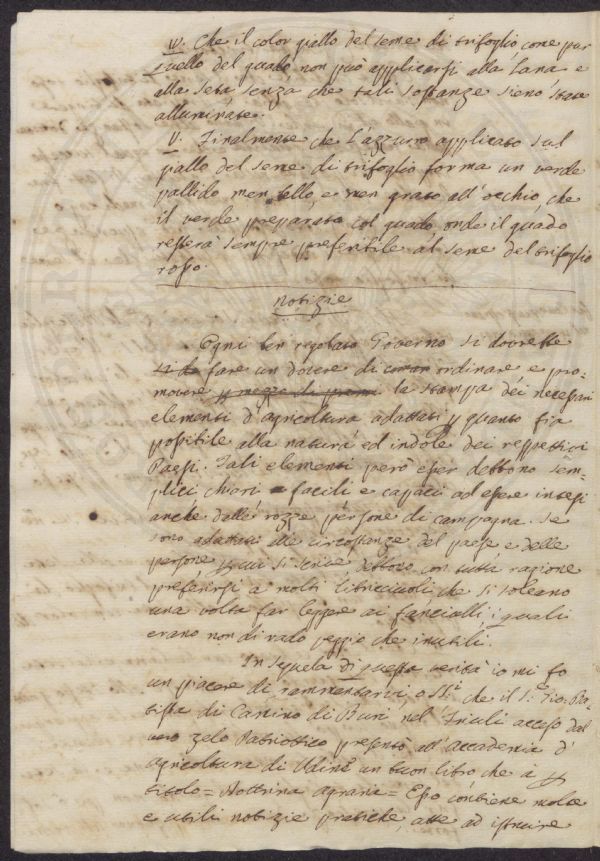 IV. Che il color giallo del seme di trifoglio, come pur
quello del guado, non può applicarsi alla lana e
alla seta senza che tali sostanze sieno state
alluminate.
V. Finalmente che l'azzurro applicato sul
giallo del seme di trifoglio forma un verde
pallido men bello, e men grato all'occhio, che
il verde preparato col guado, onde il guado
resterà sempre preferibile al seme del trifoglio
rosso.
Notizie
Ogni ben regolato Governo si dovrebbe
fare un dovere di ordinare e pro-
movere la stampa dei necessari
elementi d'agricoltura adattati p quanto fia
possibile alla natura ed indole dei respettivi
Paesi. Tali elementi però esser debbono sem-
plici chiari facili e capaci ad essere intesi
anche dalle rozze persone di campagna. Se
sono adattati alle circostanze del paese e delle
persone p cui si scrive debbono con tutta ragione
preferirsi a molti libricciuoli che si soleano
una volta far leggere ai fanciulli, i quali
erano non di rado peggio che inutili.
In sequela di questa verità io mi fo
un piacere di rammentarvi, o SS.i che il S.r Gio. Ba-
tista di Buri nel Friuli acceso del
vero zelo Patriottico presentò all'accademia d'
agricoltura di Udine un buon libro che à p
titolo = Dottrina agraria = Esso contiene molte
e utili notizie pratiche, atte ad istruire